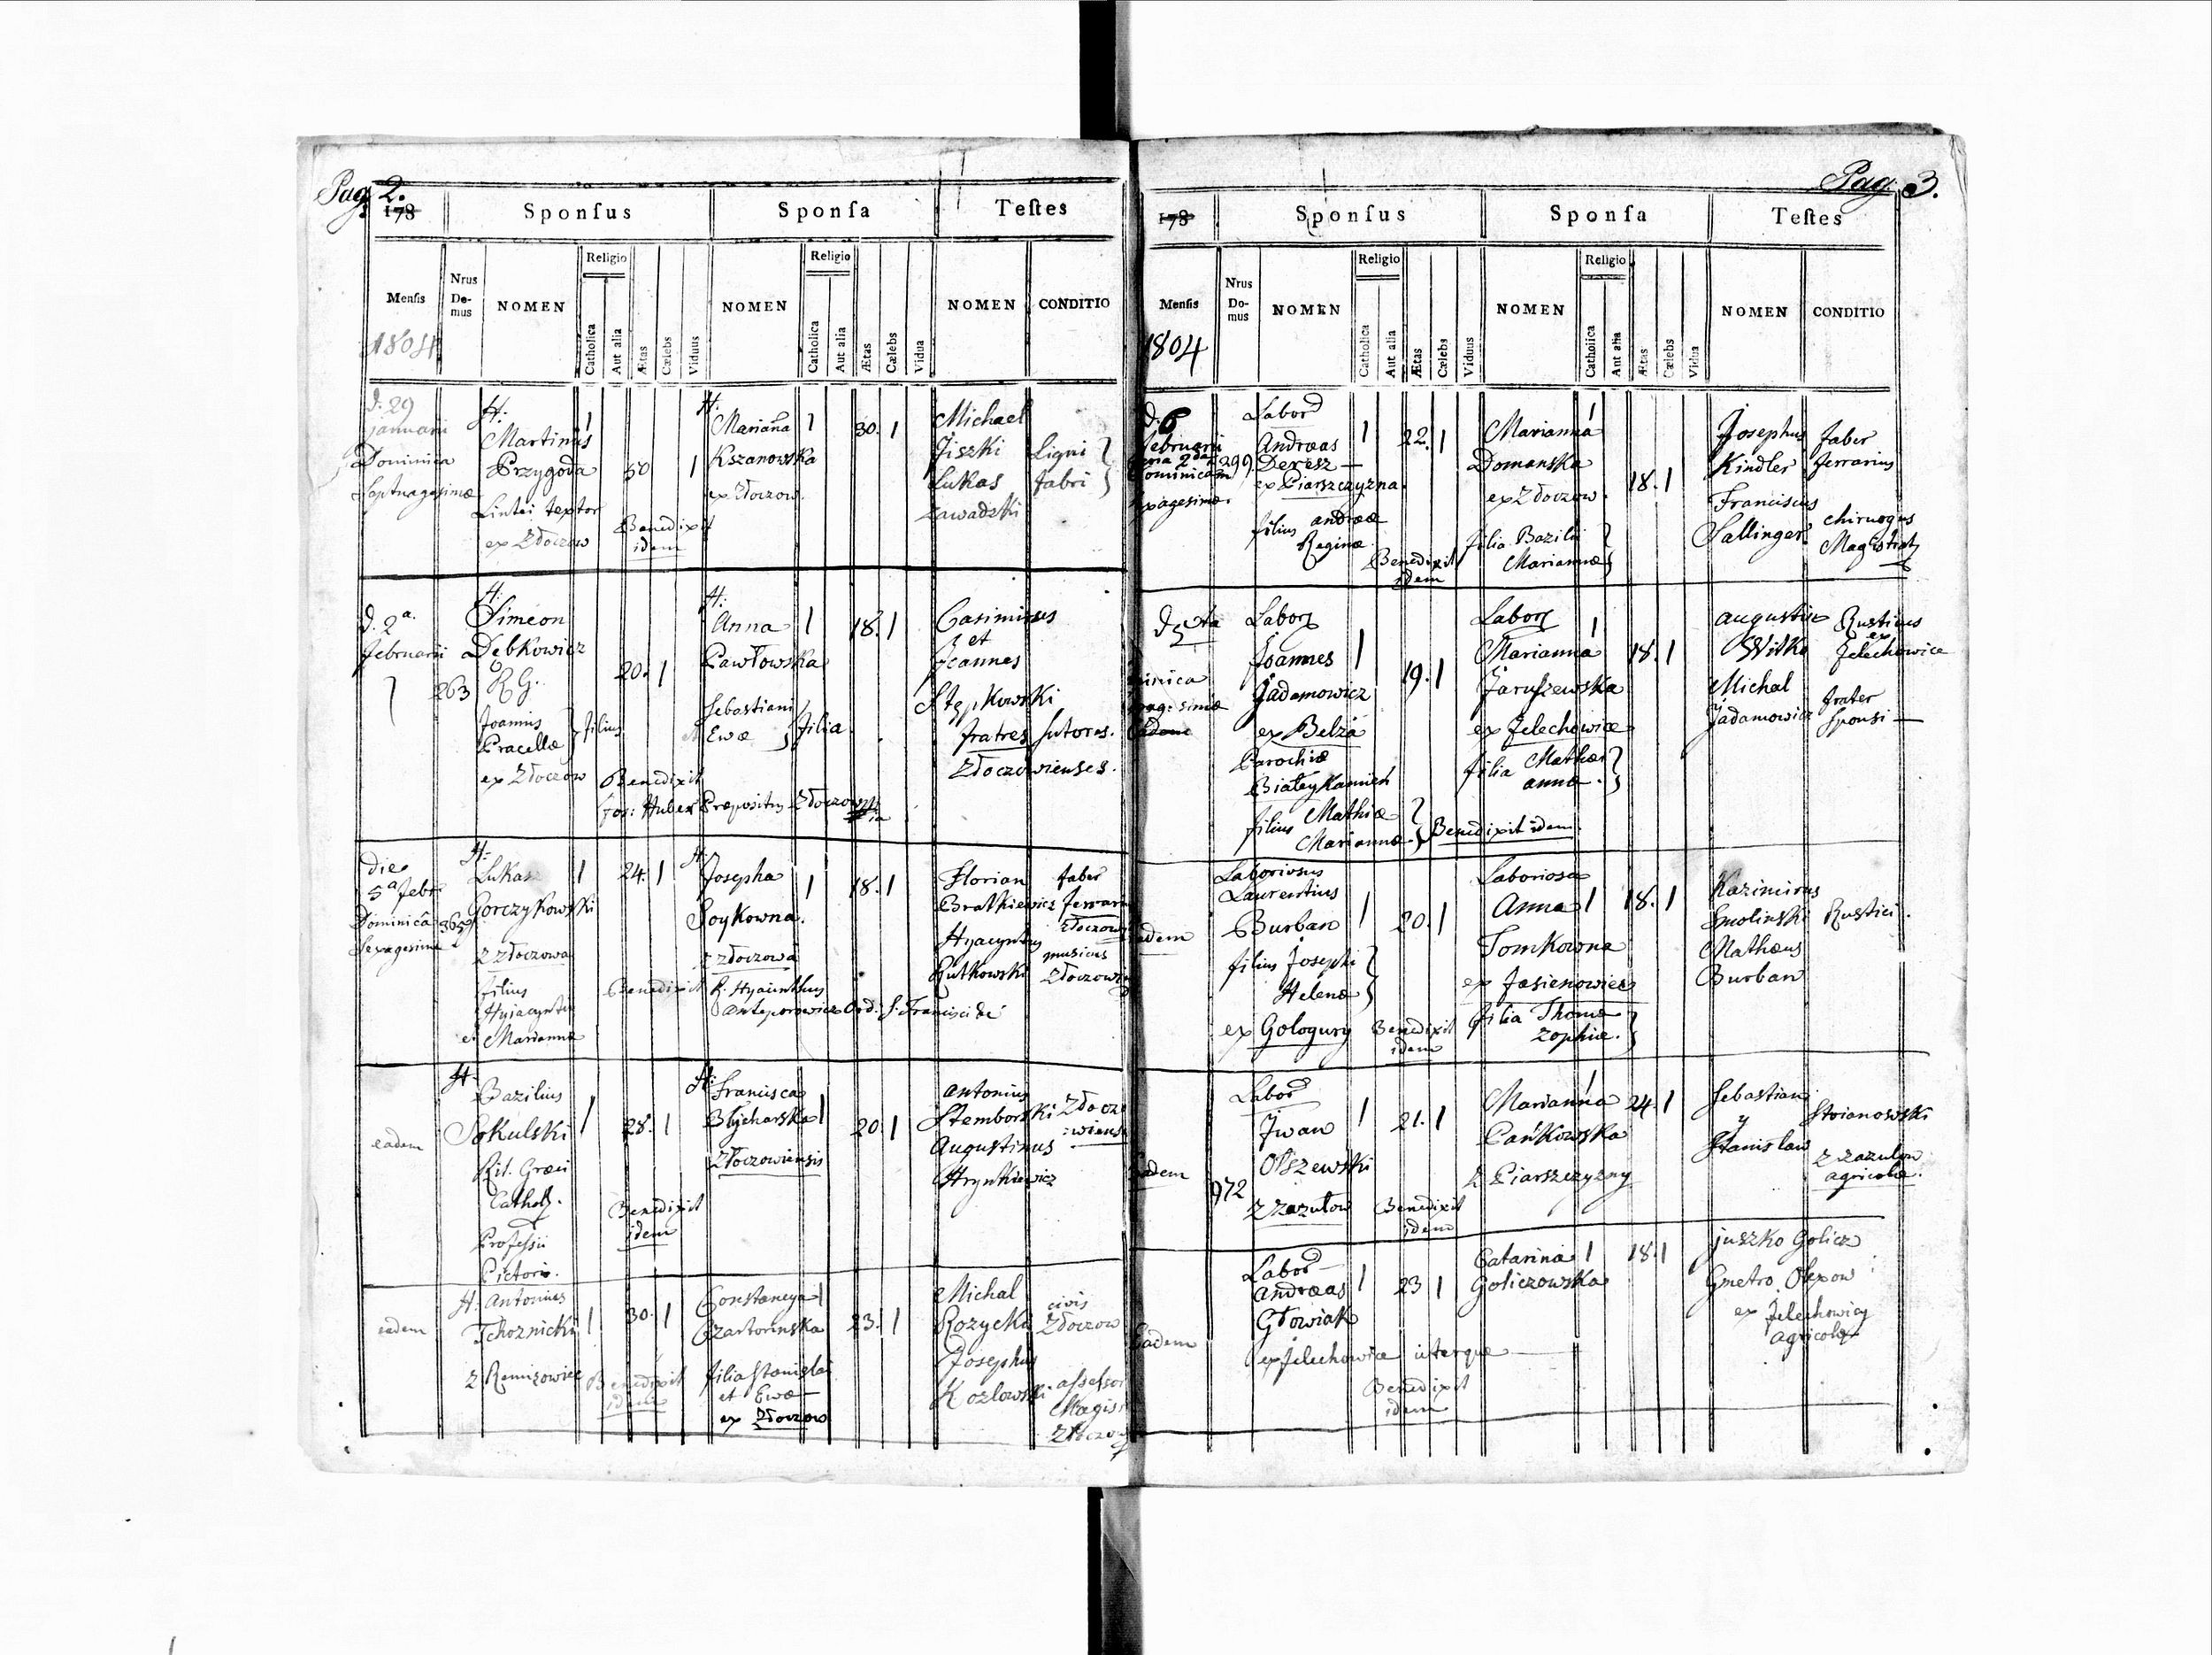 Pag. 2.
178
Sponſus
Sponſa
Teſtes
Menſis
Nrus De-mus
NOMEN
Religio
Catholica
Aut alia
Ætas
Cælebs
Viduus
NOMEN
Religio
Catholica
Aut alia
Ætas
Cælebs
Vidua
NOMEN
CONDITIO
1804
d. 29
Januarii
Dominica
Septuagesimæ
H:
Martinus
Przygoda
Lintei textor
ex Złoczow
1
50
1
Benedixit
idem
H:
Marianna
Kszanowska
ex Złoczow
1
30.
1
Michael
Jiszki
Lukas
Zawadzki
Ligni
fabri
d. 2ª
februarii
263
H:
Simeon
Debkowicz
R. G.
Joannis
Pracellæ
filius
ex Złoczow
20.
1
Benedixit
Jos: Huber Præpositus Złoczow
H:
Anna
Pawłowska
Sebastiani
Ewæ
filia
1
18.
1
Casimirus
et
Joannes
Stępkowski
fratres sutores.
Złoczowienses.
die
5ª febr
Dominica
Sexagesima
365
H:
Lukasz
Gorczykowski
z Złoczowa
filius
Hyacynthi
et Marianna
1
24.
1
Benedixit R. Hyacinthus
Ord. S. Francisci
H:
Josepha
Soykowna.
z złoczowa
1
18.
1
Florian
Bratkiewicz
Hyacynthus
Rutkowski
faber
Ferrari
Złoczow
musicus
Złoczow
eadem
H:
Bazilius
Sokulski
Rit. Græci
Cathol.
Professii
Pictoris.
1
28.
1
Benedixit
idem
H:
Francisca
Blycharska
Złoczowiensis
1
20
1
Antonius
Stemborski
Augustinus
Hrynkiewicz
Złocz
:wiens
eadem
H. Antonius
Tchoznicki
z Remizowiec
1
30.
1
Benedixit
idem
Constancya
Czartorinska
filia Stanislai
et Ewæ
ex Złoczow
1
23.
1
Michal
Rozycki
Josephus
Kozlowski
civis
Złoczow
assessor
Magis
Złoczow
Pag. 3.
178
Sponſus
Sponſa
Teſtes
Menſis
Nrus Do-mus
NOMEN
Religio
Catholica
Aut alia
Ætas
Cælebs
Viduus
NOMEN
Religio
Catholica
Aut alia
Ætas
Cælebs
Vidua
NOMEN
CONDITIO
1804
d. 6
februarii
feria 2da
Dominicam
exagesimæ
299
Labor
Andreas
Deresz
ex Piarszczyzna.
filius andreæ
Reginæ
1
22.
1
Benedixit
idem
Marianna
Domanska
ex Złoczow.
filia Bazilii
Mariannæ
1
18.
1
Josephus
Kindler
Franciscus
Sallinger
faber
ferrarius
chirurgus
Magistrat
d 5ta
Eadem
Labor
Joannes
Jadamowicz
ex Belza
Parochiæ
Białey Kamień
filius Mathiæ
Mariannæ
1
19.
1
Benedixit idem
Labor
Marianna
Jaruszewska
ex Jelechowice
filia Mathæi
annæ.
1
18.
1
Augustin
Witko
Michal
Jadamowicz
Rusticus
ex
Jelechowice
frater
sponsi
Eadem
Laboriosus
Laurentius
Burban
filius Josephi
Helenæ
ex Gologury
1
20.
1
Benedixit
idem
Laboriosa
Anna
Tomkowna
ex Jasienowiec
filia Thomæ
Zophiæ.
1
18.
1
Kazimirus
Smolinski
Mathæus
Burban
Rustici.
Eadem
972
Labor
Jwan
Olszewski
z Zazulow
1
21.
1
Benedixit
idem
Marianna
Pańkowska
z Piarszczyzny
1
24.
1
Sebastian
y
Stanislaw
Stoianowski
z zazulow
agricolæ.
Eadem
Labor
andreas
Głowiak
ex Jelechowice uterque
1
23
1
Benedixit
idem
Catarina
Goliczowska
1
18.
1
juszko Golicz
Gmetro Olexow
ex Jelechowicy
agricolæ